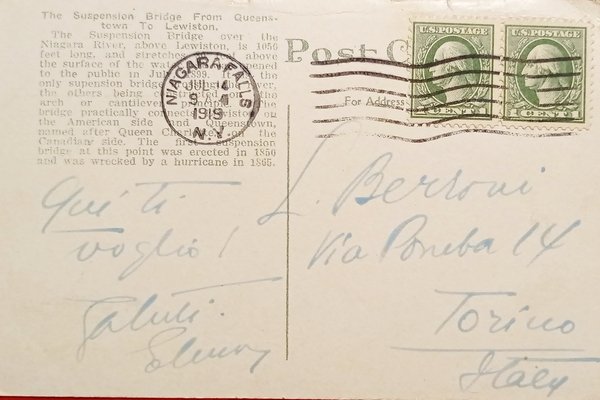 The Suspension Bridge From Queens-
town To Lewiston.
The Suspension Bridge over the
Niagara River, above Lewiston, is 1050
feet long, and stretches above
the surface of the water
to the public in July 1899.
only supension bridge river,
the others being on the
arch or cantilever
bridge practically connects Lewiston on
the American side and Queenstown,
named after Queen Charlotte, on the
Canadian side. The first suspension
bridge at this point was erected in 1850
and was wrecked by a hurricane in 1865.
Post
For Address
NIAGARA FALLS
JUL 14
1919
N.Y.
U.S. POSTAGE
1 CENT 1
U.S. POSTAGE
1 CENT 1
Qui ti
voglio!
Saluti.
L. Berroni
Via Poneba 14
Torino
Italy